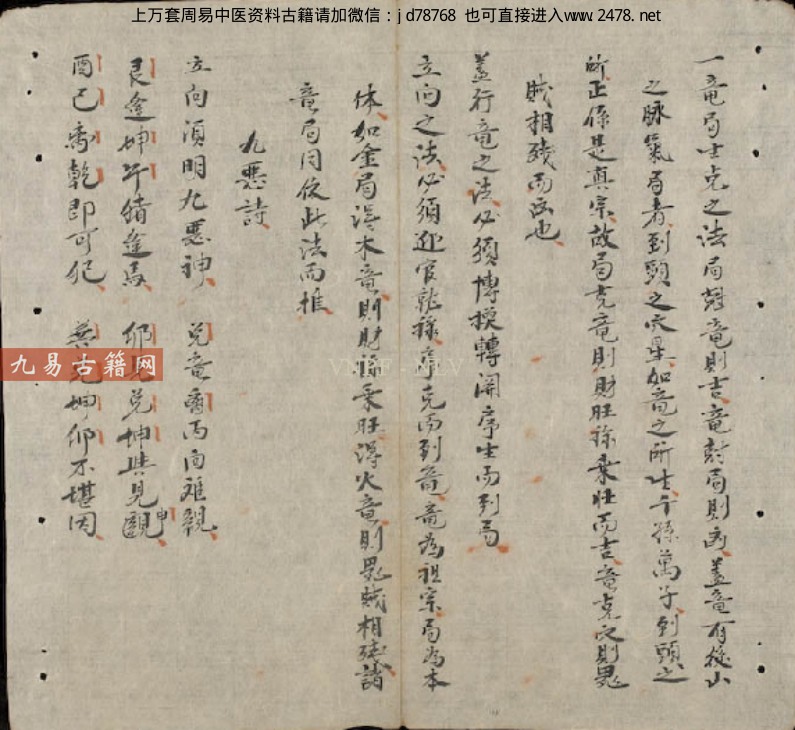 上万套周易中医资料古籍请加微信：jd78768 也可直接进入www.2478.net
一竜局生克之法局克竜則吉竜尅局則凶蓋竜有從山
之脉氣局者到頭之穴星如竜之所生千孫萬子到頭之
所正係是真宗故局克竜則財旺祿乗旺而吉竜克之則鬼
賊相殘而凶也
蓋行竜之法必須博換轉関序生而到局
立向之法必須迎官就祿序克而到竜竜為祖宗局為本
体如金局浔木竜則財祿乗旺浔火竜則鬼賊相殘諸
竜局同仿此法而推
九悪詩
立向須明九悪神 兑竜丙向难親
艮逢坤午猪逢馬 卯見兑坤與見
申
酉己乾即可犯 坤卯不堪因
九易古籍网